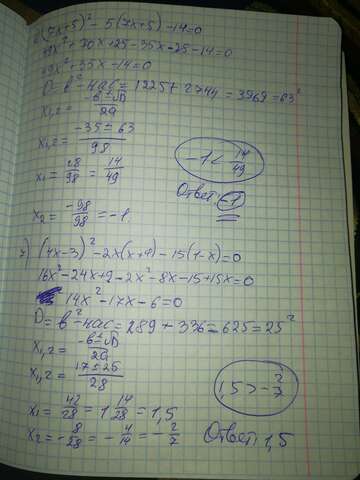 6) (7x+5)² - 5(7x+5) - 14=0
49x² + 70x + 25 - 35x - 25 - 14=0
49x² + 35x - 14=0
D = b² - 4ac = 1225 + 2744 = 3969 = 63²
x₁,₂ = -b ± √D / 2a
x₁,₂ = -35 ± 63 / 98
x₁ = 28/98 = 14/49
-1 < 14/49
Ответ: -1
x₂ = -98/98 = -1.
7) (4x-3)² - 2x(x+4) - 15(1-x)=0
16x² - 24x + 9 - 2x² - 8x - 15 + 15x=0
14x² - 17x - 6=0
D = b² - 4ac = 289 + 336 = 625 = 25²
x₁,₂ = -b ± √D / 2a
x₁,₂ = 17 ± 25 / 28
1,5 > -2/7
x₁ = 42/28 = 1 14/28 = 1,5
x₂ = -8/28 = -4/14 = -2/7
Ответ: 1,5